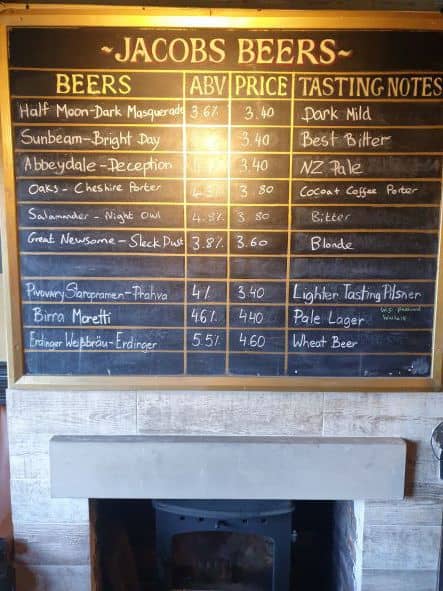 ~JACOBS BEERS~
BEERS ABV PRICE TASTING NOTES
Half Moon-Dark Masquerade 3.6% 3.40 Dark Mild
Sunbeam-Bright Day 3.40 Best Bitter
Abbeydale-Deception 3.40 NZ Pale
Oaks - Cheshire Porter 3.80 Cocoa+ Coffee Porter
Salamander - Night Owl 4.8% 3.80 Bitter
Great Newsome-Sleck Dust 3.8% 3.60 Blonde
Pivovary Staropramen-Prahva 4% 3.40 Lighter Tasting Pilsner
Birra Moretti 4.6% 4.40 Pale Lager
Erdinger Weißbräu-Erdinger 5.5% 4.60 Wheat Beer